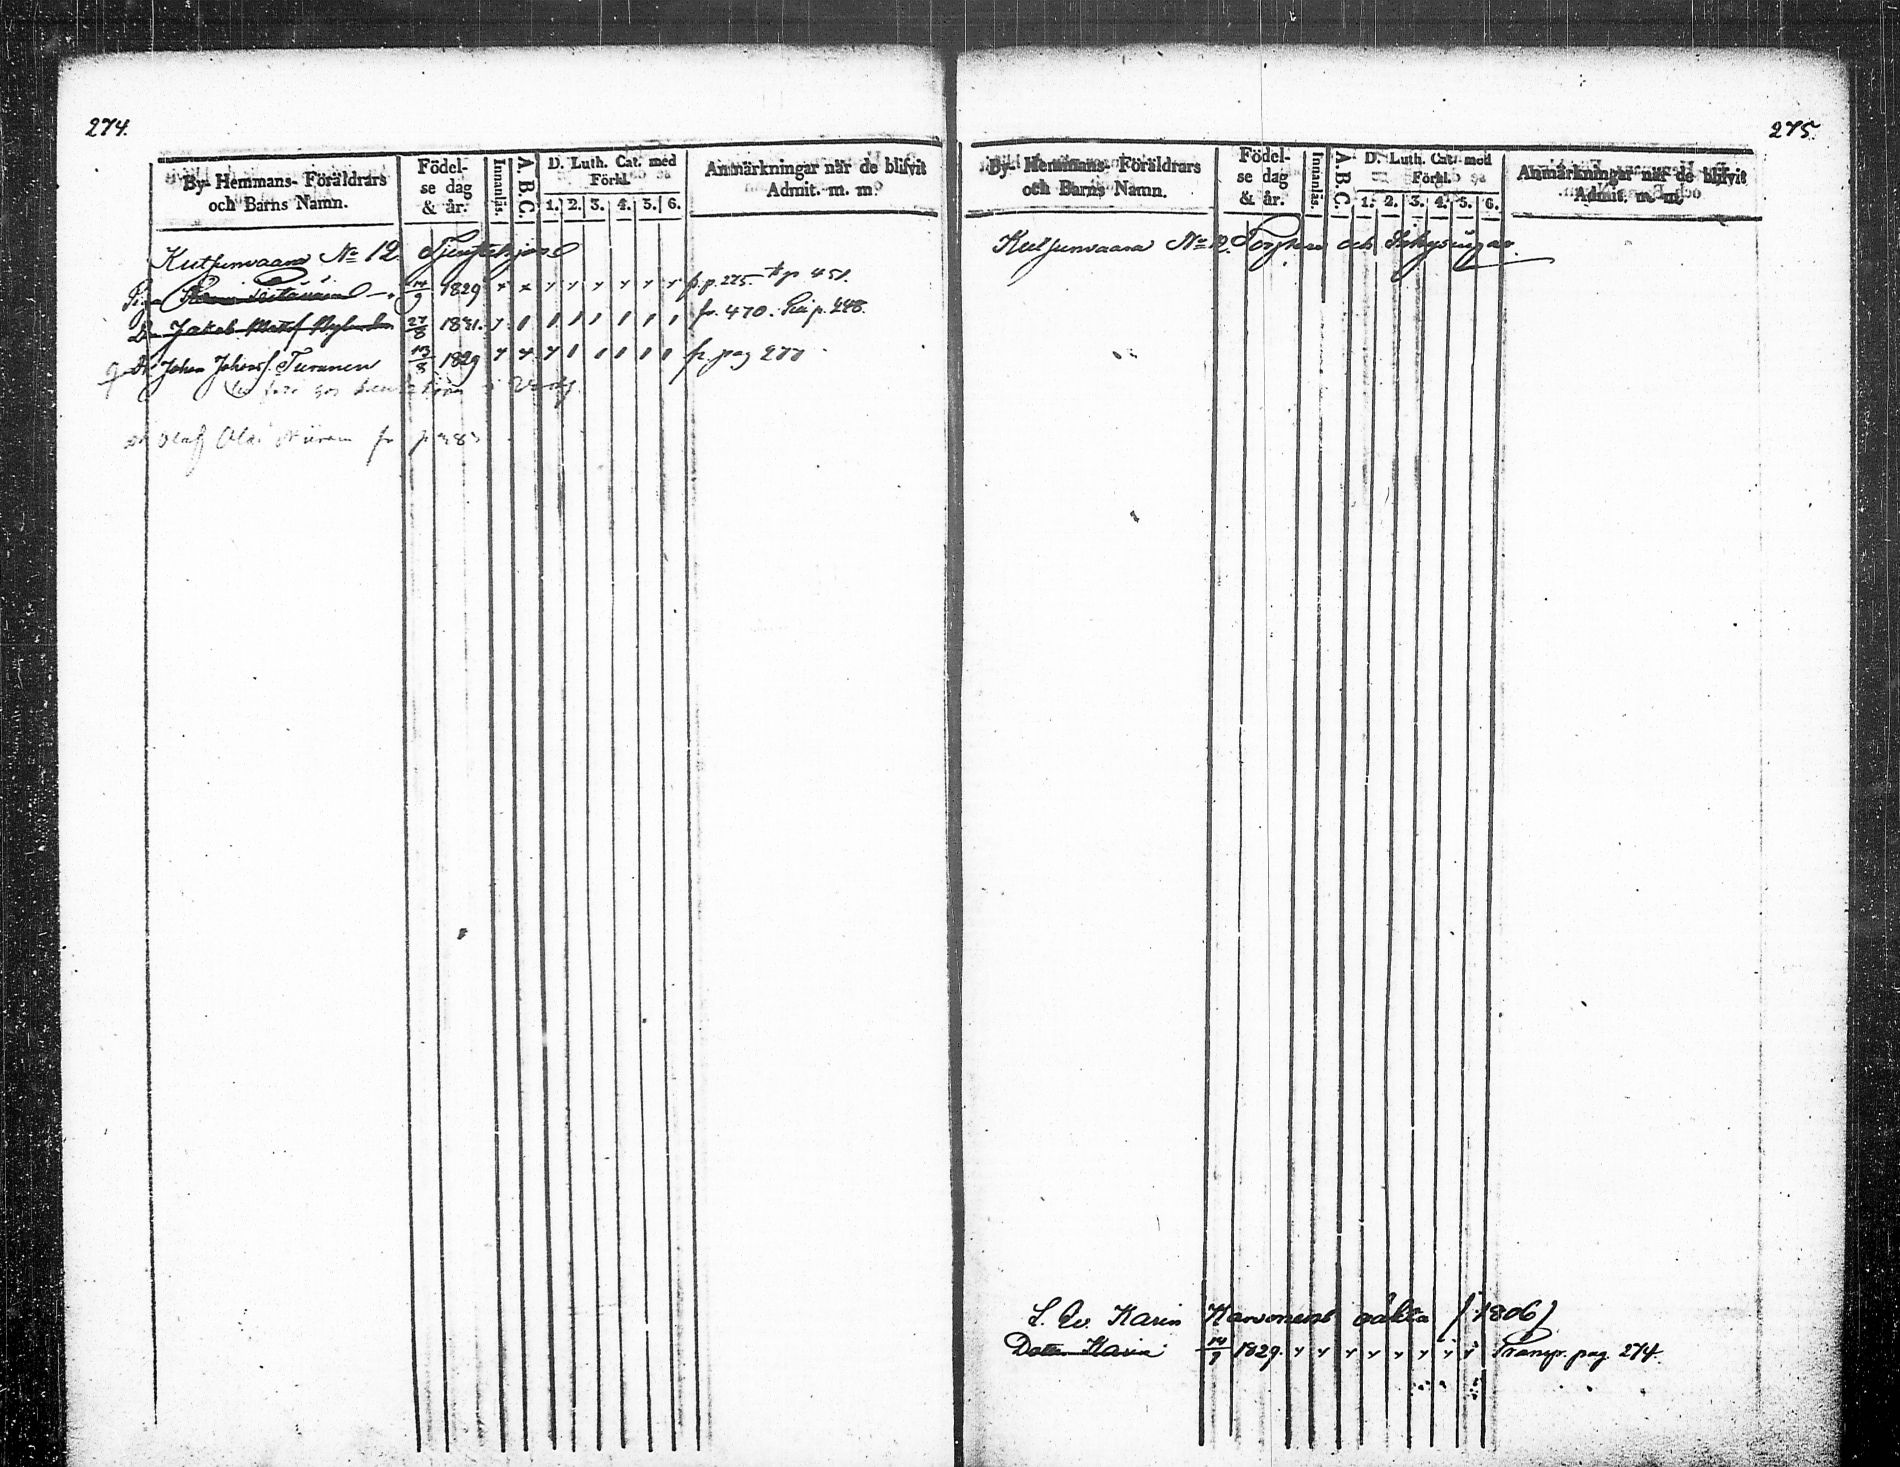 274.
By- Hemmans- Föräldrars och Barns Namn.
Födel- se dag & år.
Innanläs.
A. B. C.
D. Luth. Cat. med Förkl.
1. 2. 3. 4. 5. 6.
Anmärkningar när de blifvit Admit. m. m.
Kutsunvaara No 12. Tjenstehjon
Piga 14/9 1829 f. p. 275. Tr p. 451.
Dr. Jakob Matsf Nylander 27/8 1831. fr. 470. 248.
Dr. Johan Johansf. Turanen 13/8 1829 fr. pag 277
Dr Olaf Olai fr p 383
275.
By- Hemmans- Föräldrars och Barns Namn.
Födel- se dag & år.
Innanläs.
A. B. C.
D. Luth. Cat. med Förkl.
1. 2. 3. 4. 5. 6.
Anmärkningar när de blifvit Admit. m. m.
Kutsunvaara No 12. Torpare och Inhysingar.
L. Qv. Karin oäkta (1806)
Dotter Karin 14/9 1829. Transp. pag. 274.